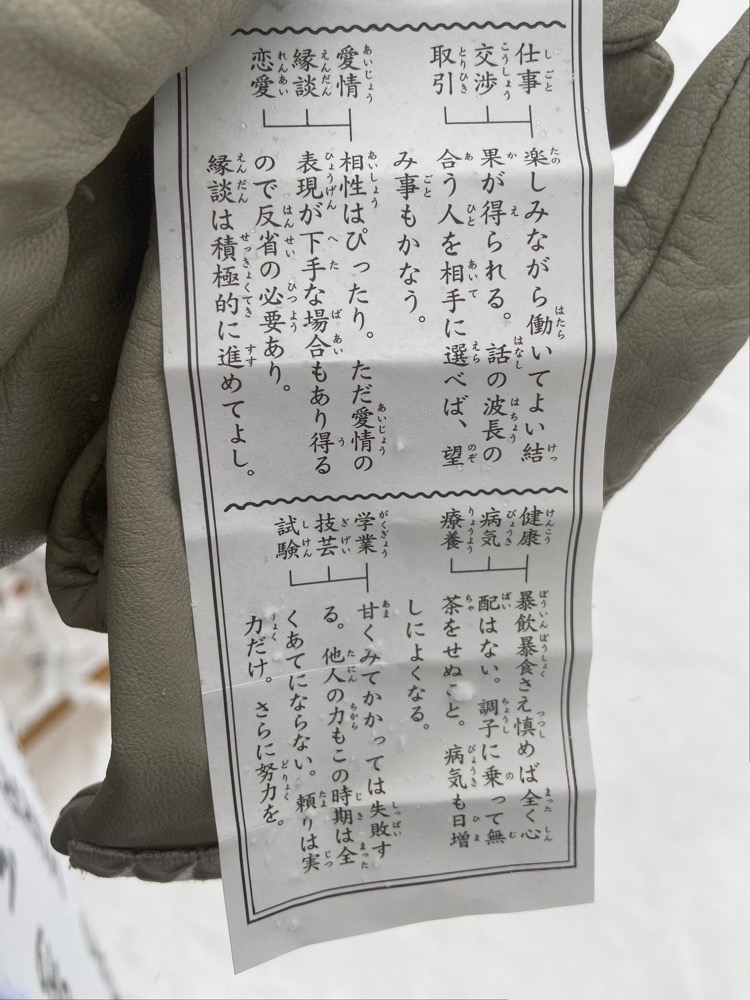 仕事
交渉
取引
楽しみながら働いてよい結
果が得られる。話の波長の
合う人を相手に選べば、望
み事もかなう。
愛情
縁談
恋愛
相性はぴったり。ただ愛情の
表現が下手な場合もあり得る
ので反省の必要あり。
縁談は積極的に進めてよし。
健康
病気
療養
暴飲暴食さえ慎めば全く心
配はない。調子に乗って無
茶をせぬこと。病気も日増
しによくなる。
学業
技芸
試験
甘くみてかかっては失敗す
る。他人の力もこの時期は全
くあてにならない。頼りは実
力だけ。さらに努力を。